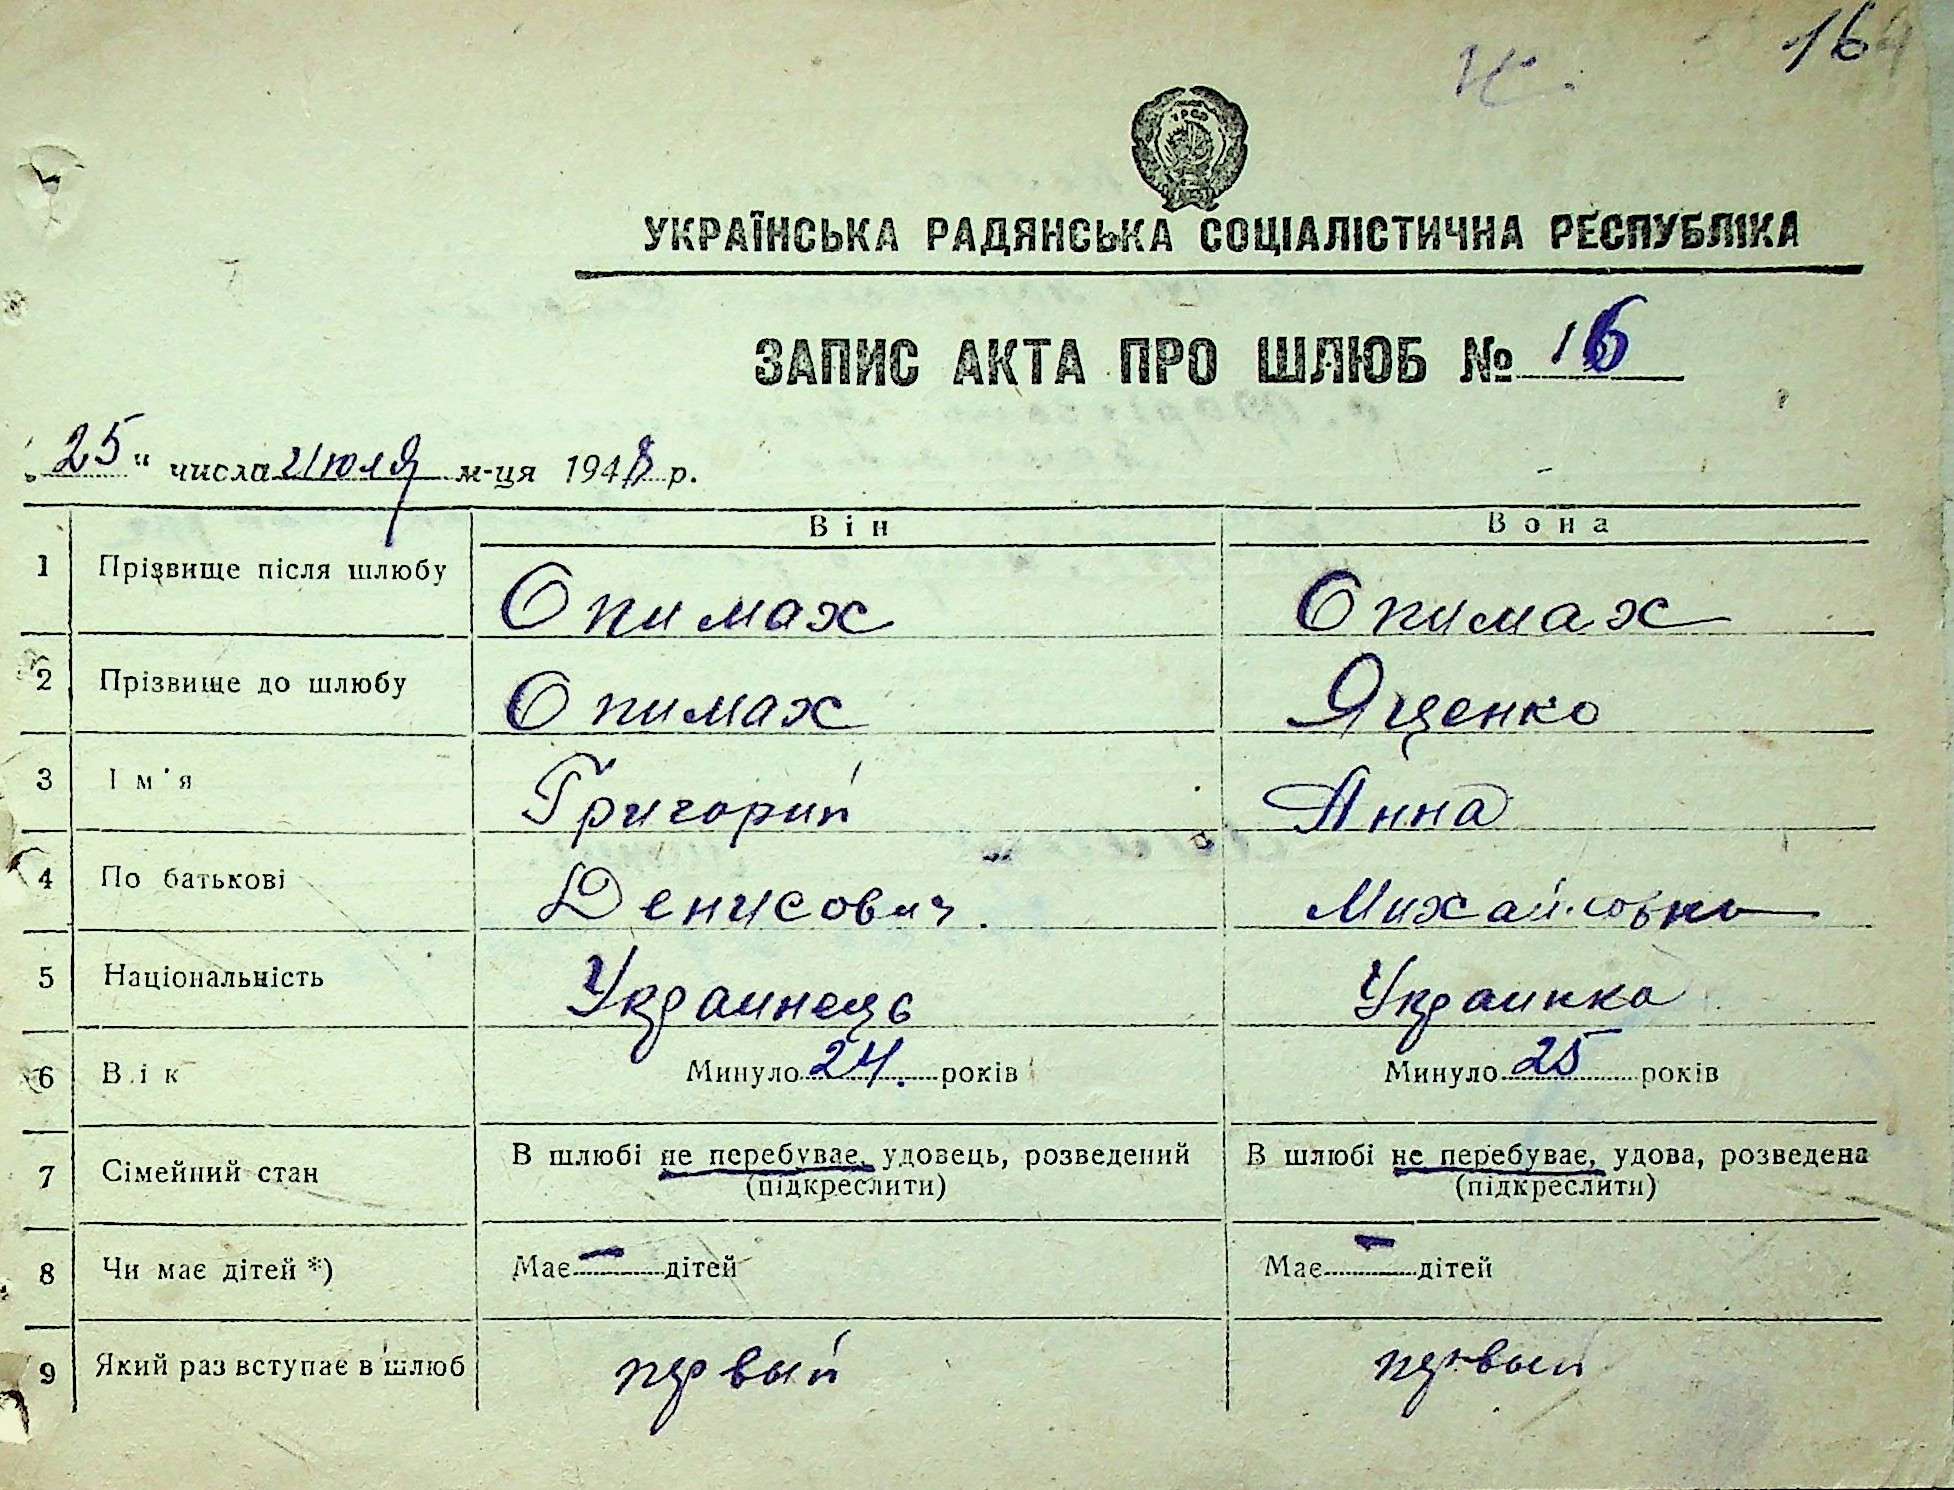 164
К.
УРСР
УКРАЇНСЬКА РАДЯНСЬКА СОЦІАЛІСТИЧНА РЕСПУБЛІКА
ЗАПИС АКТА ПРО ШЛЮБ № 16
„25“ числа Июля м-ця 1948 р.
Він Вона
1 Прізвище після шлюбу Опимах Опимах
2 Прізвище до шлюбу Опимах Яценко
3 Ім'я Григорий Анна
4 По батькові Денисович. Михайловна
5 Національність Украинець Украинка
6 Вік Минуло 24. років Минуло 25 років
7 Сімейний стан В шлюбі не перебуває, удовець, розведений В шлюбі не перебуває, удова, розведена
(підкреслити) (підкреслити)
8 Чи має дітей *) Має — дітей Має — дітей
9 Який раз вступає в шлюб первый первый